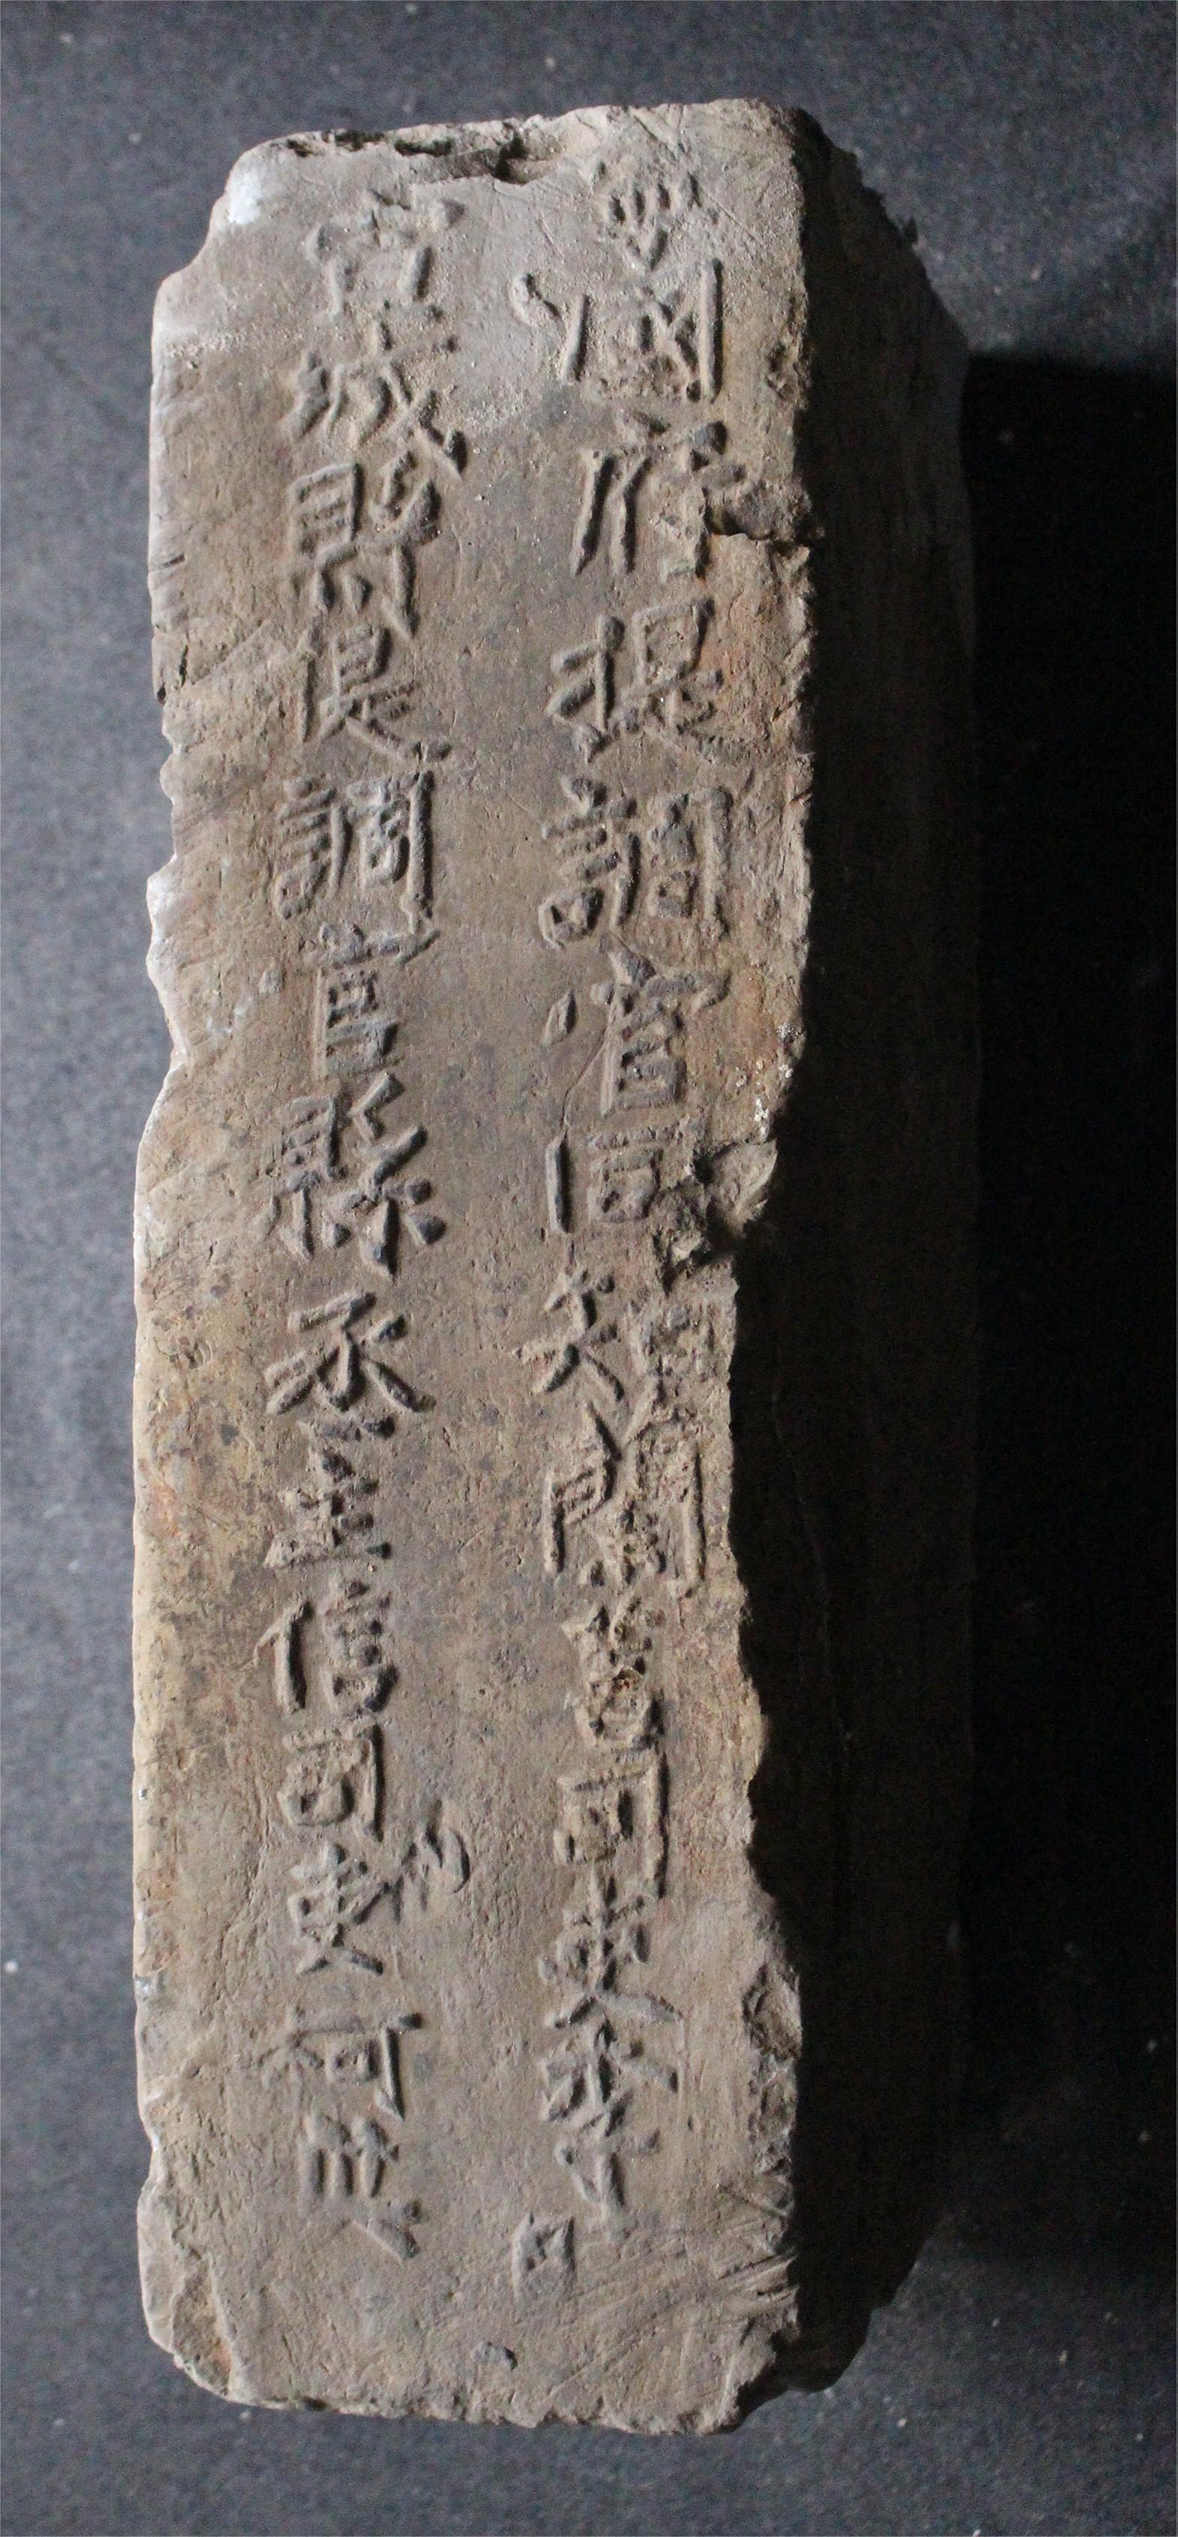 寧國府提調官同知司吏
宣城縣提調官縣丞王信司吏何